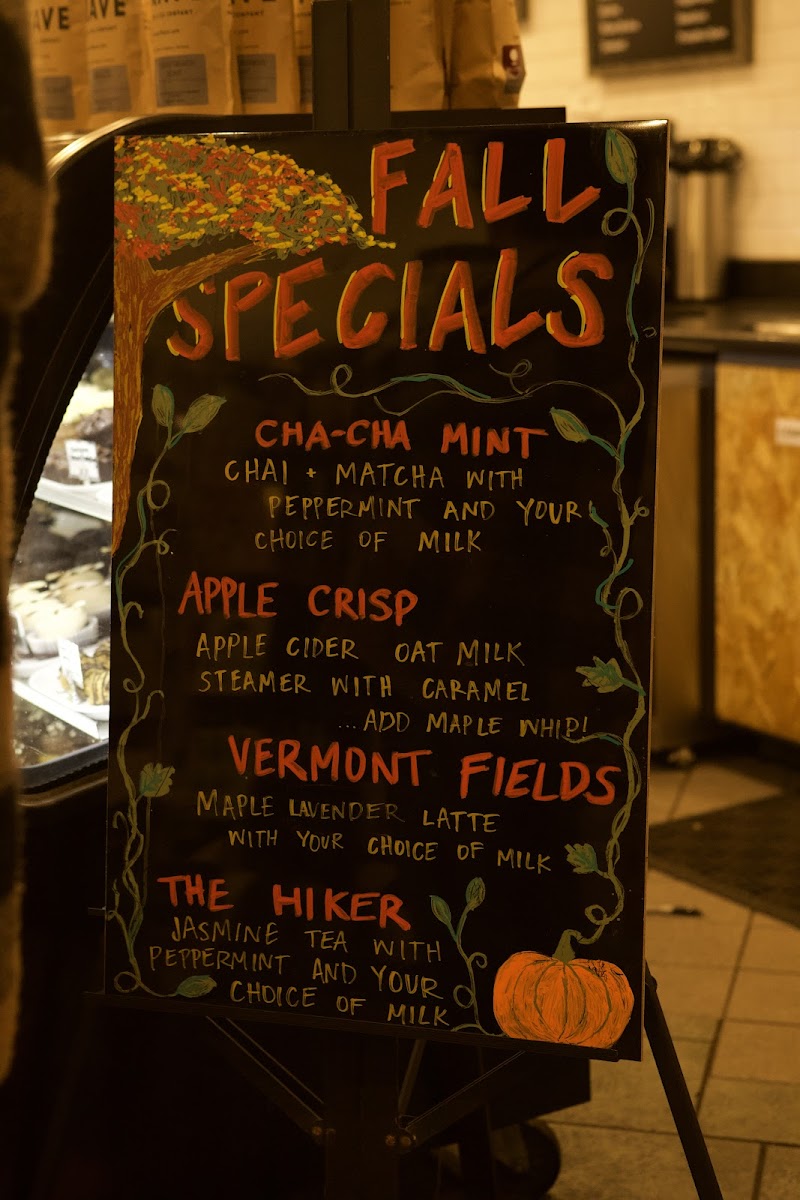 AVE
AVE
AVE
AVE
FALL
SPECIALS
CHA-CHA MINT
CHAI + MATCHA WITH
PEPPERMINT AND YOUR
CHOICE OF MILK
APPLE CRISP
APPLE CIDER OAT MILK
STEAMER WITH CARAMEL
...ADD MAPLE WHIP!
VERMONT FIELDS
MAPLE LAVENDER LATTE
WITH YOUR CHOICE OF MILK
THE HIKER
JASMINE TEA WITH
PEPPERMINT AND YOUR
CHOICE OF MILK